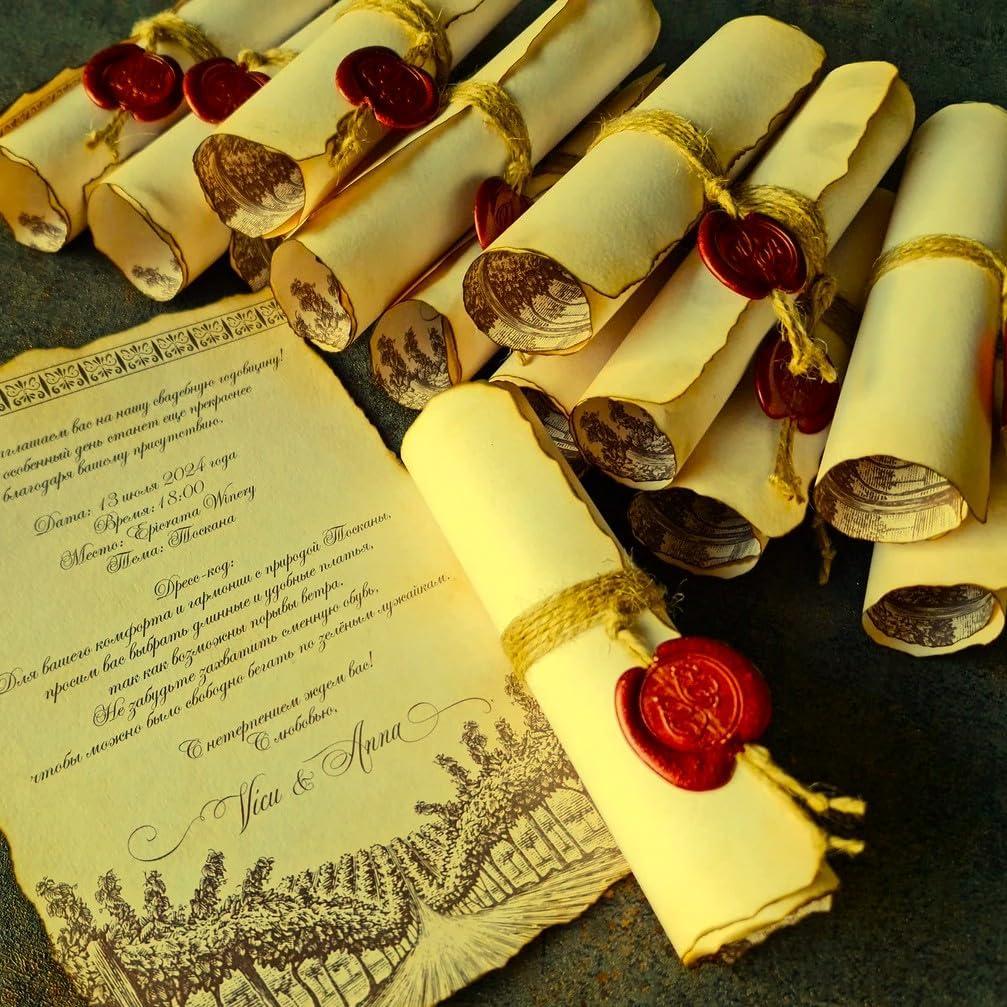 вас на нашу свадебную годовщину!
особенный день станет еще прекраснее
благодаря вашему присутствию.
Дата: 13 июля 2024 года
Время: 18:00
Место: Epicrata Winery
Тема: Тоскана
Дресс-код:
Для вашего комфорта и гармонии с природой Тосканы,
просим вас выбрать длинные и удобные платья,
так как возможны порывы ветра.
Не забудьте захватить сменную обувь,
чтобы можно было свободно бегать по зелёным лужайкам.
С нетерпением ждем вас!
С любовью,
Vicu & Anna